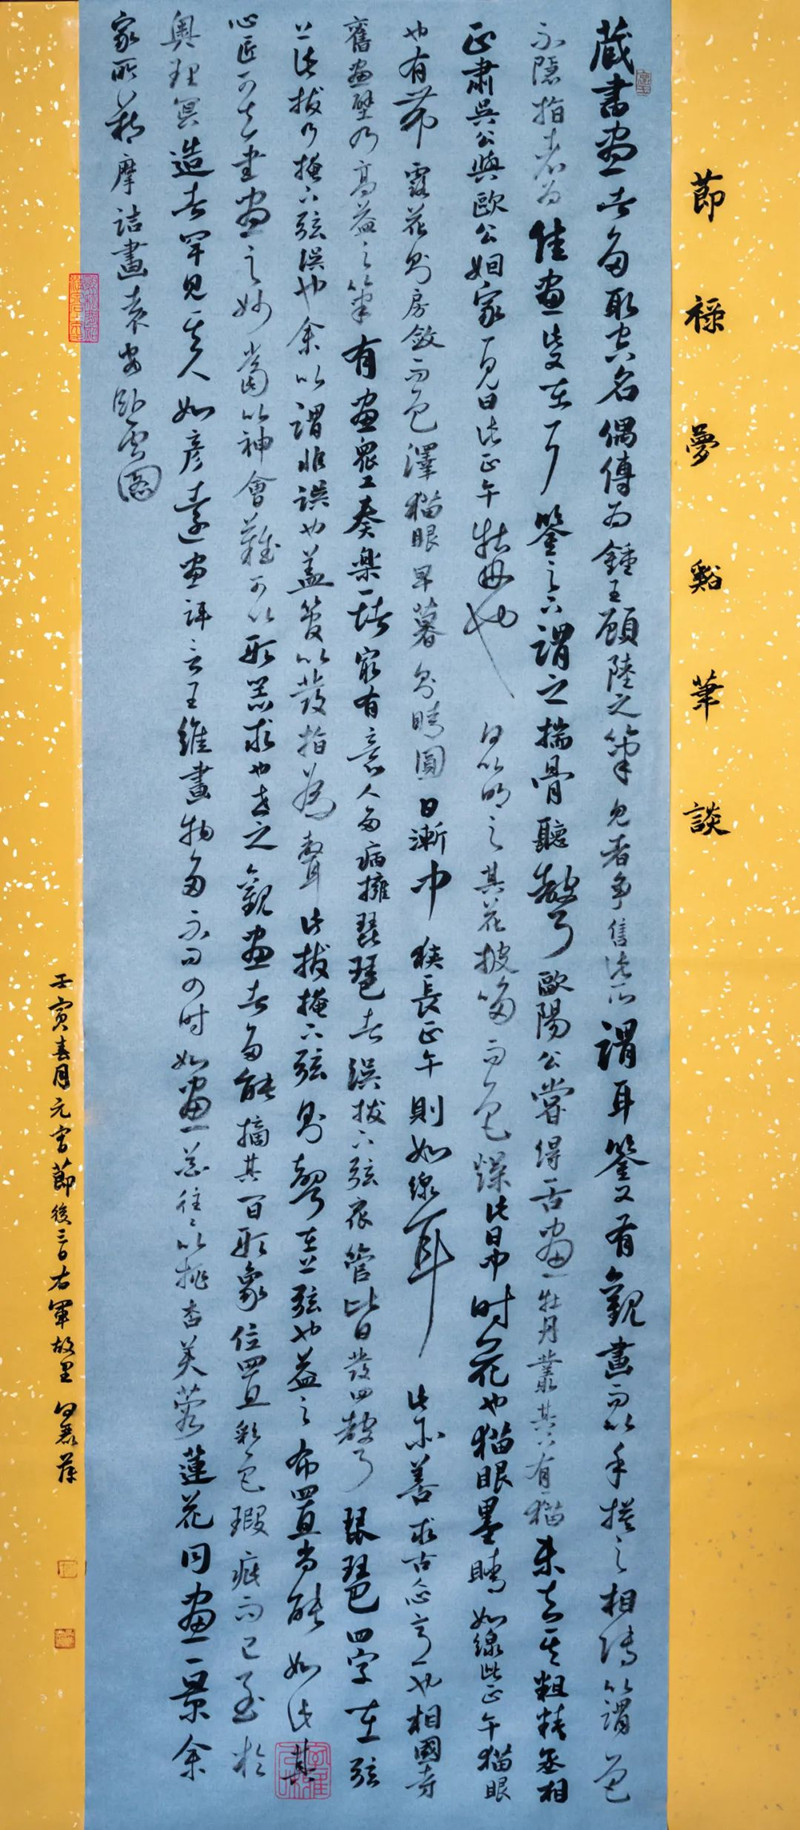 節祿夢谿筆談
藏書畫者多取空名偶傳為鍾王顧陸之筆見者爭售此所謂耳鑒又有觀畫而以手摸之相傳以謂色
不隱指者為佳畫此又在耳鑒之下謂之揣骨聽聲歐陽公嘗得古畫一牡丹叢其下有一猫未知其粗精丞相
正肅吳公與歐公姻家一見曰此正午牡丹也何以明之其花披哆而色燥此日中時花也猫眼黑睛如線此正午猫眼
也有帶露花則房斂而色澤猫眼早暮則睛圓日漸中狹長正午則如線耳此亦善求古人心意也相國寺
舊畫壁乃高益之筆有畫眾工奏樂一堵最有意人多病擁琵琶者誤撥下弦眾管皆發四聲琵琶四字在弦
上此撥乃掩下弦誤也余以謂非誤也蓋管以發指為聲此撥掩下弦則聲在上弦也益之布置尚能如此其
心匠可知書畫之妙當以神會難可以形器求也世之觀畫者多能摘其間形象位置彩色瑕疵而已至於
奧理冥造者罕見其人如彥遠畫評言王維畫物多不問四時如畫花往往以桃杏芙蓉蓮花同畫一景余
家所藏摩詰畫袁安臥雪圖
壬寅春月元宵節後三日右軍故里